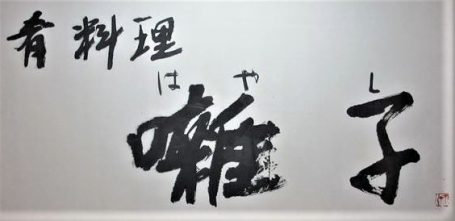 肴料理
はやし
囃子